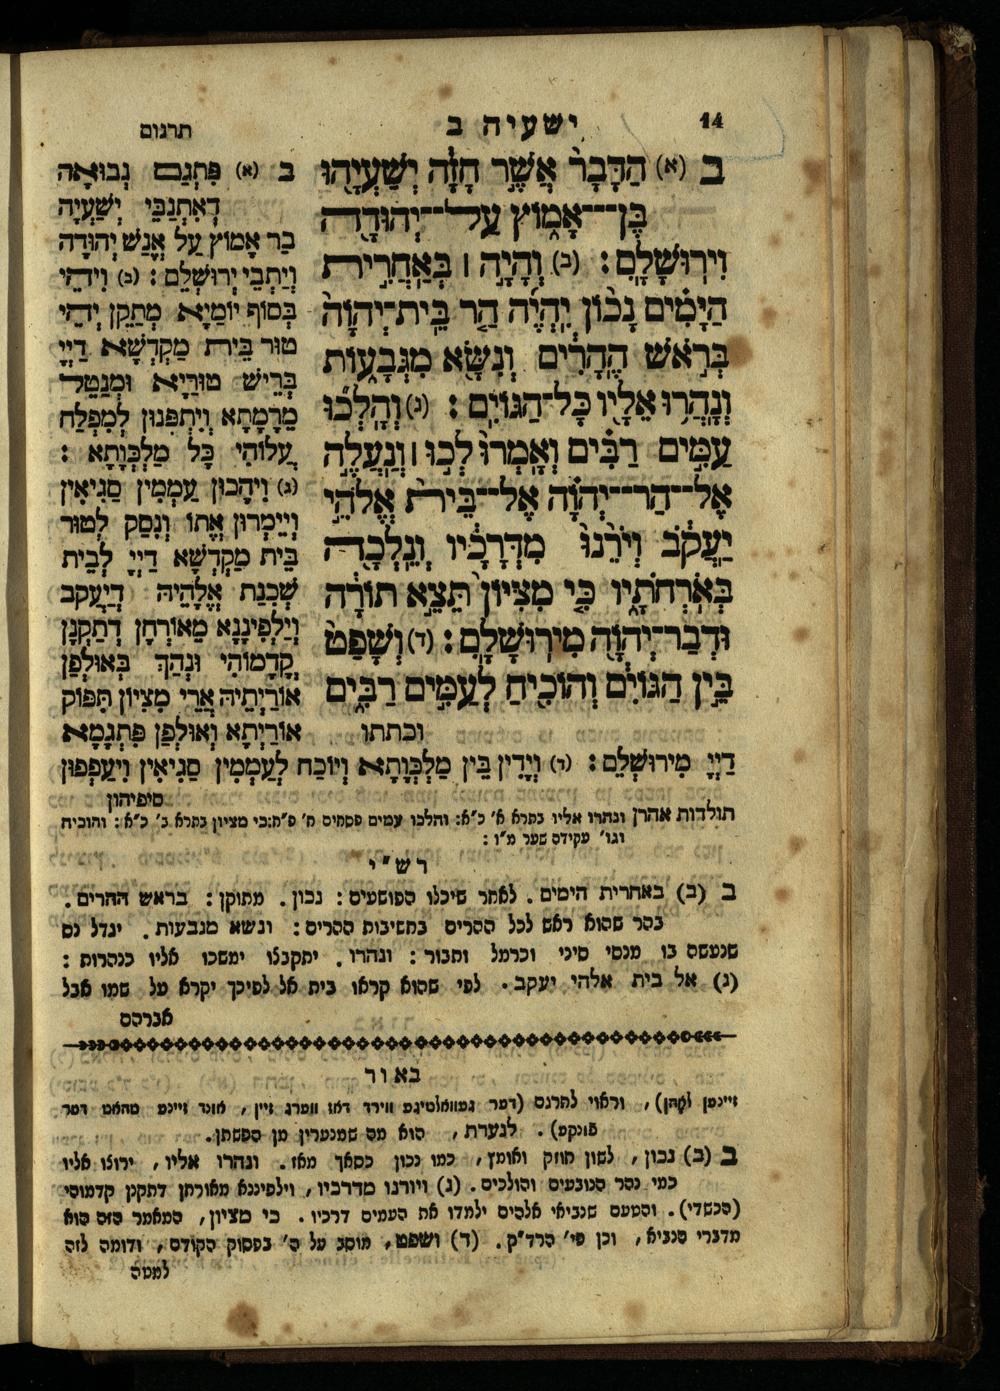 14
ישעיה ב
תרגום
ב (א) הַדָּבָר֙ אֲשֶׁ֣ר חָזָ֔ה יְשַׁעְיָ֖הוּ
בֶּן־אָמ֑וֹץ עַל־יְהוּדָ֖ה
וִירֽוּשָׁלָֽ͏ִם׃ (ב) וְהָיָ֣ה ׀ בְּאַחֲרִ֣ית
הַיָּמִ֗ים נָכ֨וֹן יִֽהְיֶ֜ה הַ֤ר בֵּֽית־יְהוָֹה֙
בְּרֹ֣אשׁ הֶֽהָרִ֔ים וְנִשָּׂ֖א מִגְּבָע֑וֹת
וְנָהֲר֥וּ אֵלָ֖יו כָּל־הַגּוֹיִֽם׃ (ג) וְֽהָלְכ֞וּ
עַמִּ֣ים רַבִּ֗ים וְאָֽמְרוּ֙ לְכ֣וּ ׀ וְנַעֲלֶ֣ה
אֶל־הַר־יְהוָֹ֗ה אֶל־בֵּית֙ אֱלֹהֵ֣י
יַעֲקֹ֔ב וְיֹרֵ֙נוּ֙ מִדְּרָכָ֔יו וְנֵלְכָ֖ה
בְּאֹרְחֹתָ֑יו כִּ֤י מִצִּיּוֹן֙ תֵּצֵ֣א תוֹרָ֔ה
וּדְבַר־יְהוָֹ֖ה מִירֽוּשָׁלָֽ͏ִם׃ (ד) וְשָׁפַט֙
בֵּ֣ין הַגּוֹיִ֔ם וְהוֹכִ֖יחַ לְעַמִּ֣ים רַבִּ֑ים
וכתתו
ב (א) פִּתְגַם נְבוּאָה
דְּאִתְנַבֵּי יְשַׁעְיָה
בַר אָמוֹץ עַל אֱנַשׁ יְהוּדָה
וְיַתְבֵי יְרוּשְׁלֵם׃ (ב) וִיהֵי
בְּסוֹף יוֹמַיָּא מְתַקַּן יְהֵי
טוּר בֵּית מַקְדְּשָׁא דַיְיָ
בְּרֵישׁ טוּרַיָּא וּמְנַטַל
מֵרָמָתָא וְיִתְפְּנוּן לְמִפְלַח
עֲלוֹהִי כָּל מַלְכְוָתָא׃
(ג) וִיהָכוּן עַמְמִין סַגִיאִין
וְיֵימְרוּן אֱתוֹ וְנִסַק לְטוּר
בֵּית מַקְדְּשָׁא דַיְיָ לְבֵית
שְׁכִנַת אֱלָהֵיהּ דְיַעֲקֹב
וְיַלְפִינָנָא מֵאוֹרְחָן דְתַקְנָן
קֳדָמוֹהִי וּנְהַךְ בְּאוּלְפַן
אוֹרַיְתֵיהּ אֲרֵי מִצִיוֹן תִּפּוֹק
אוֹרַיְתָא וְאוּלְפַן פִּתְגָמָא
דַיְיָ מִירוּשְׁלֵם׃ (ד) וְיָדִין בֵּין מַלְכְוָתָא וְיוֹכַח לְעַמְמִין סַגִיאִין וִיעַפְפוּן
סיפיהון
תולדות אהרן ונהרו אליו בתרא א' כ"א: והלכו עמים פסחים ח' פ"ח: כי מציון בתרא ב' כ"א: והוכיח
וגו' עקידה שער מ"ו:
רש"י
ב (ב) באחרית הימים. לאחר שיכלו הפושעים: נכון. מתוקן: בראש ההרים.
בהר שהוא ראש לכל ההרים בחשיבות ההרים: ונשא מגבעות. יגדל נס
שנעשה בו מנסי סיני וכרמל ותבור: ונהרו. יתקבצו ימשכו אליו כנהרות:
(ג) אל בית אלהי יעקב. לפי שהוא קראו בית אל לפיכך יקרא על שמו אבל
אברהם
באור
זיינען לאָהן), וראוי לתרגם (דער געוואלטיגע ווירד דאז ווערג זיין, אונד זיינע טהאט דער
פונקע). לנעורת, הוא מה שמנערין מן הפשתן.
ב (ב) נכון, לשון חוזק ואומץ, כמו נכון כסאך מאז. ונהרו אליו, ירוצו אליו
כמי נהר הנובעים והולכים. (ג) ויורנו מדרכיו, וילפיננא מאורחן דתקנן קדמוהי
(הכשדי). והטעם שנביאי אלהים ילמדו את העמים דרכיו. כי מציון, המאמר הזה הוא
מדברי הנביא, וכן פי' הרד"ק. (ד) ושפט, מוסב על ה' בפסוק הקודם, ודומה לזה
למטה